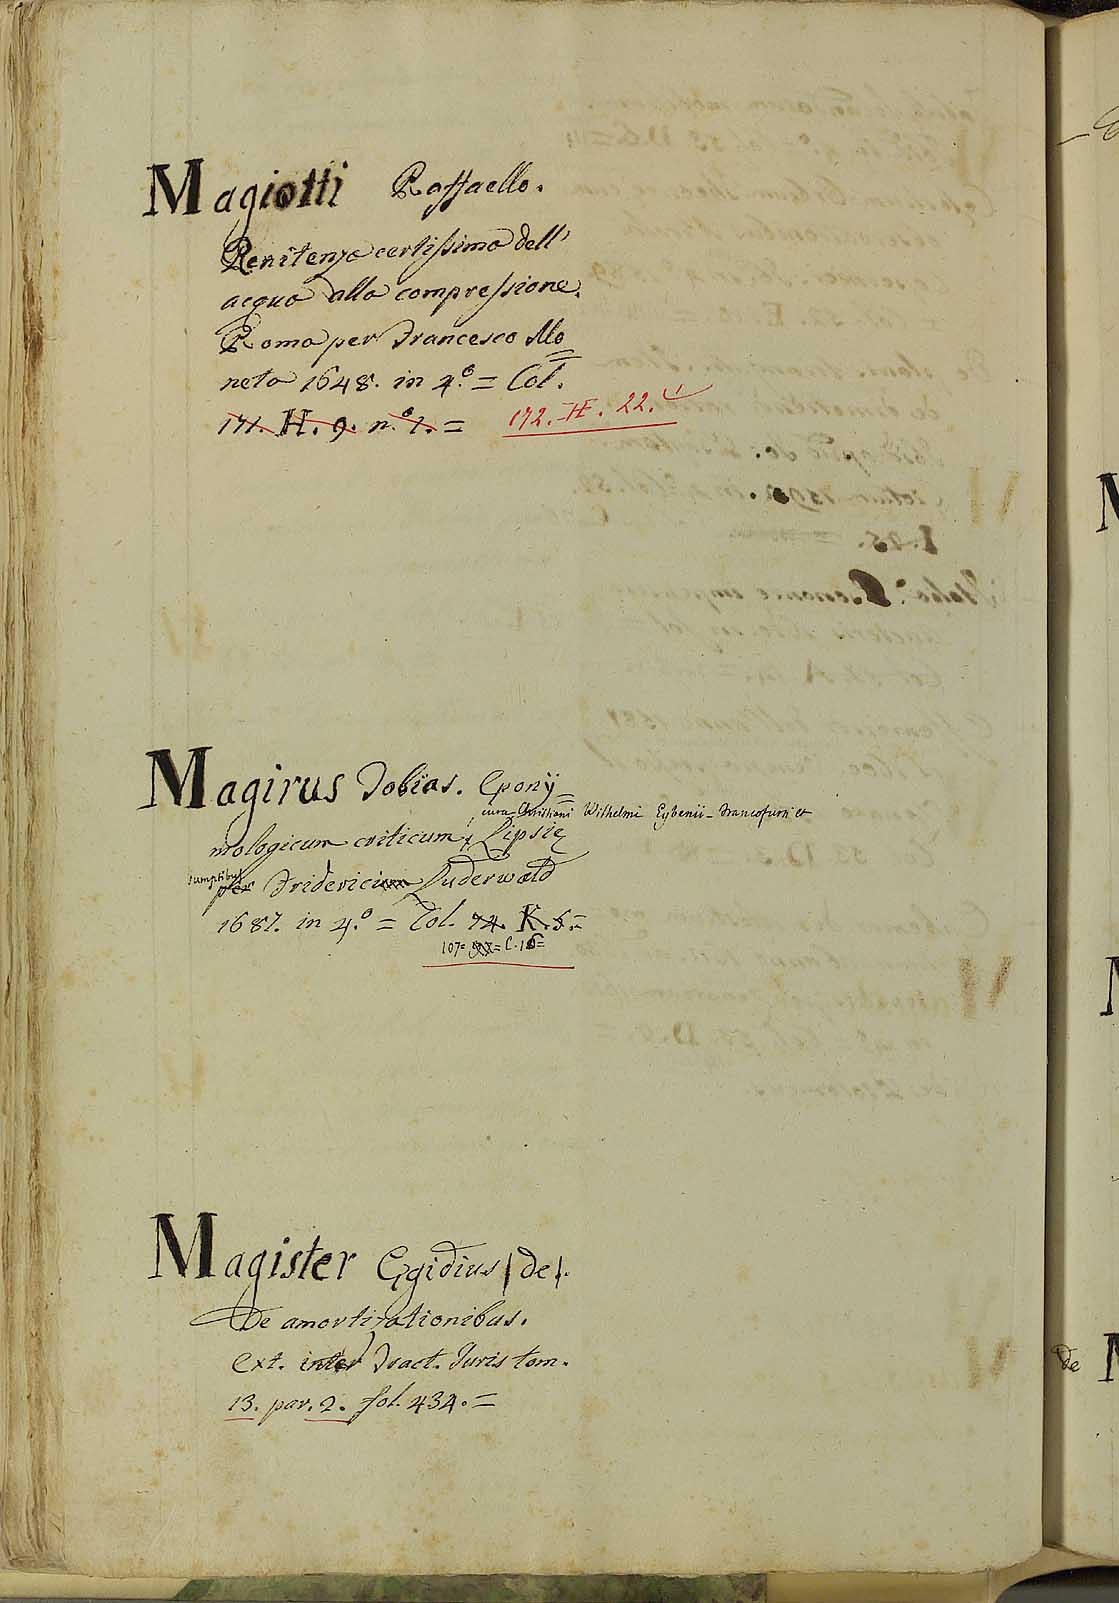 Magiotti Raffaello.
Renitenza certissima dell'
acqua alla compressione.
Roma per Francesco Mo=
neta 1648. in 4.º = Col.
171. H. 9. n.º 7. = 172. H. 22.
Magirus Tobias. Epony=
cura Christiani Wilhelmi Eybenii - Francofurti et
mologicum criticum, Lipsię
sumptibus
per Fridericum Luderwald
1687. in 4.º = Col. 74. K. 5. =
107 = C. 16 =
Magister Egidius (de).
De amortizationibus.
ext. inter Tract. Juris tom.
13. par. 2. fol. 434. =
de